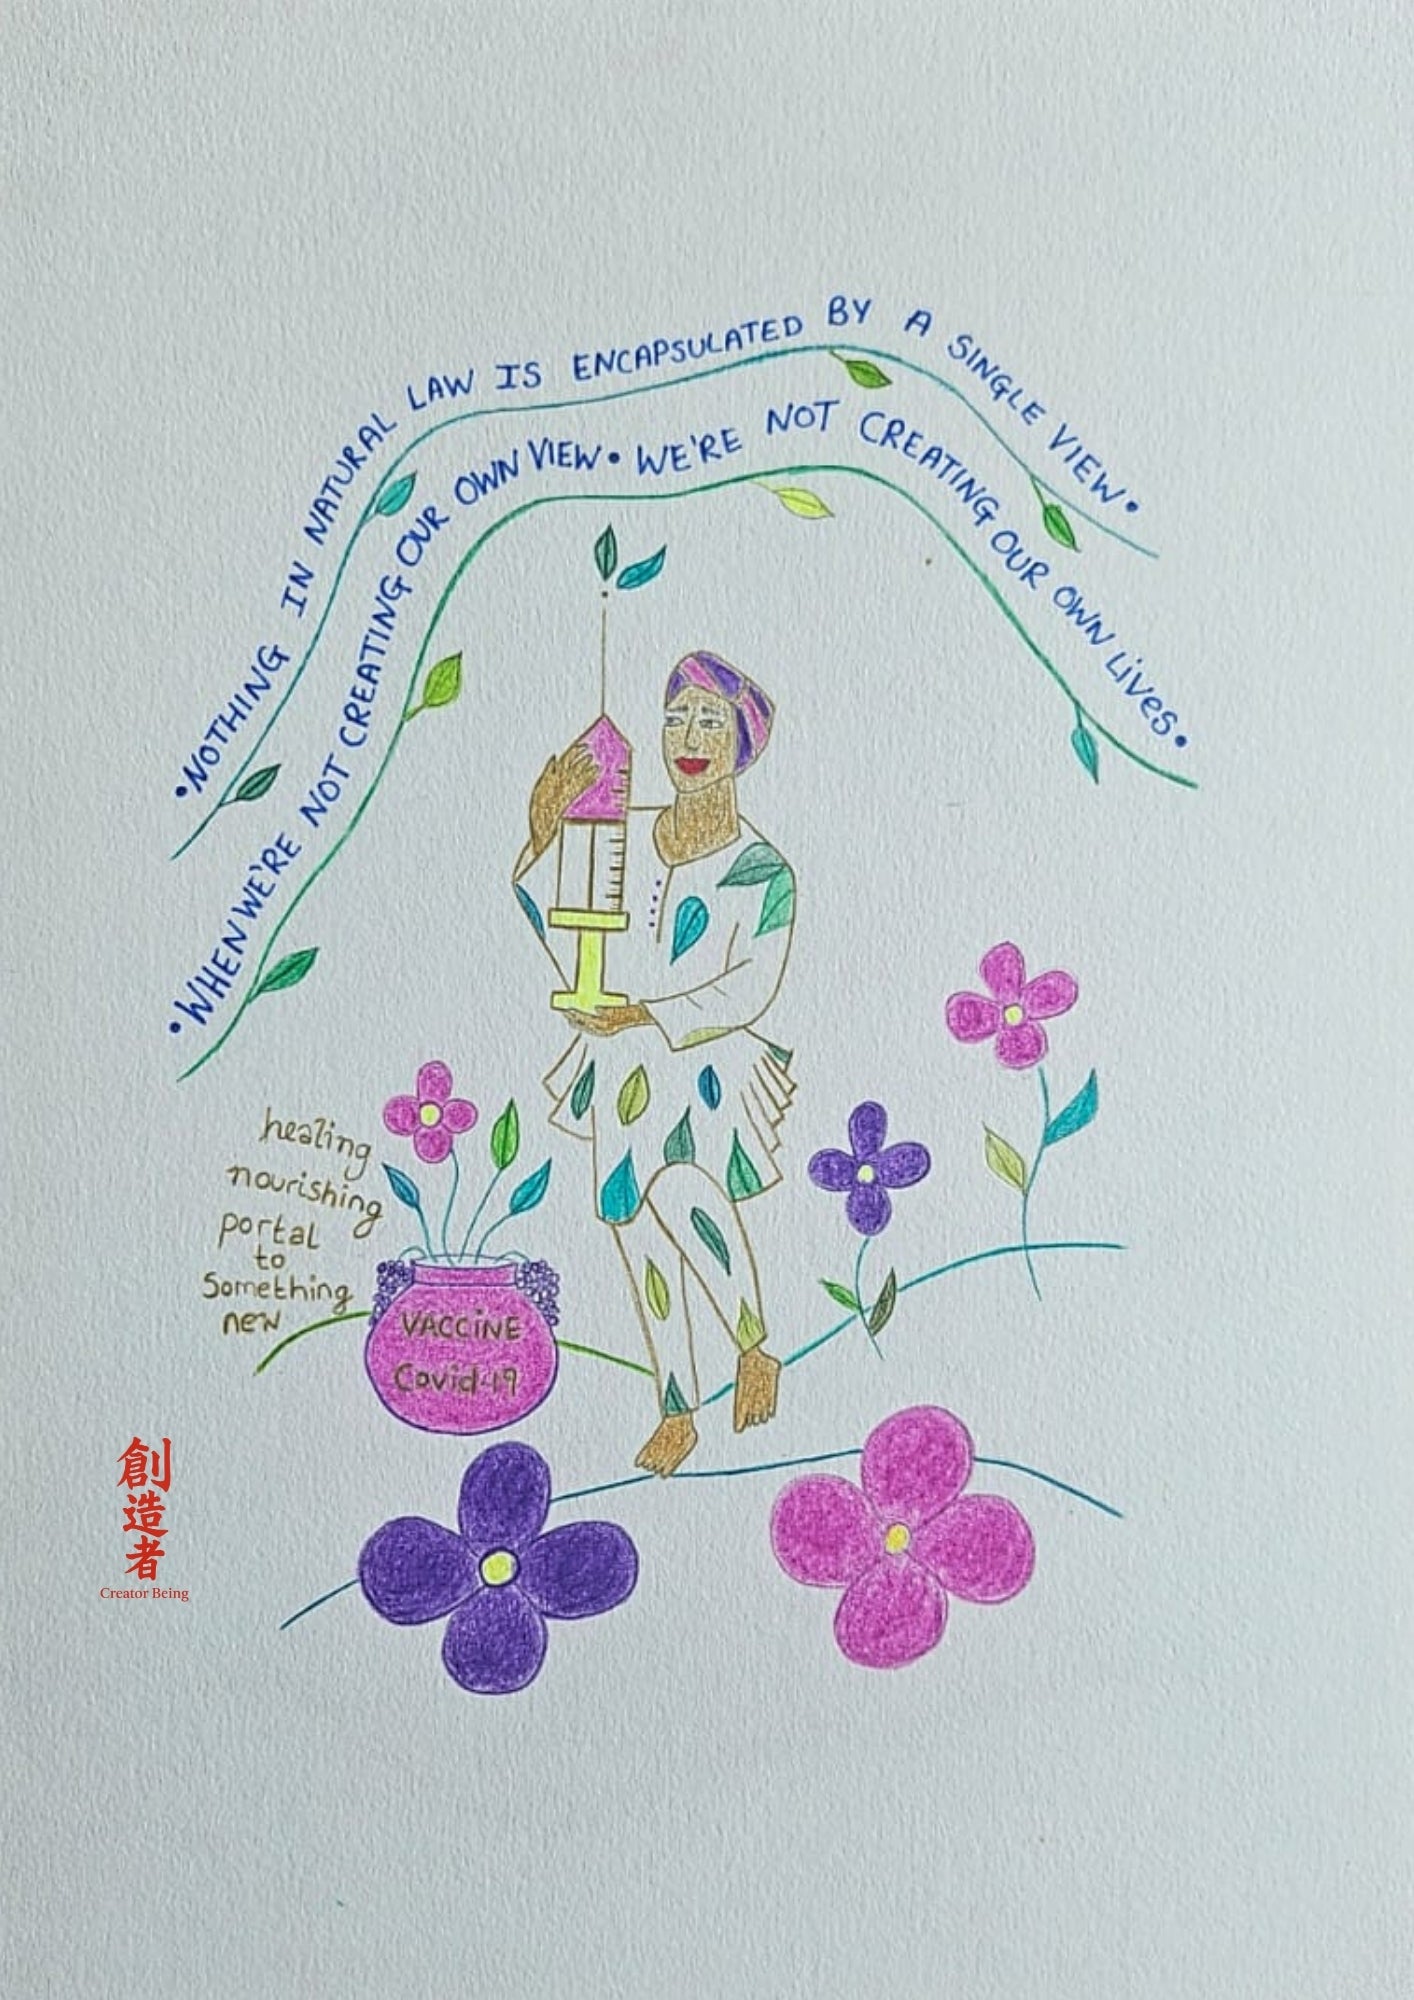 •NOTHING IN NATURAL LAW IS ENCAPSULATED BY A SINGLE VIEW•
•WHEN WE'RE NOT CREATING OUR OWN VIEW• WE'RE NOT CREATING OUR OWN LIVES•
healing
nourishing
portal
to
Something
new
VACCINE
Covid-19
創造者
Creator Being